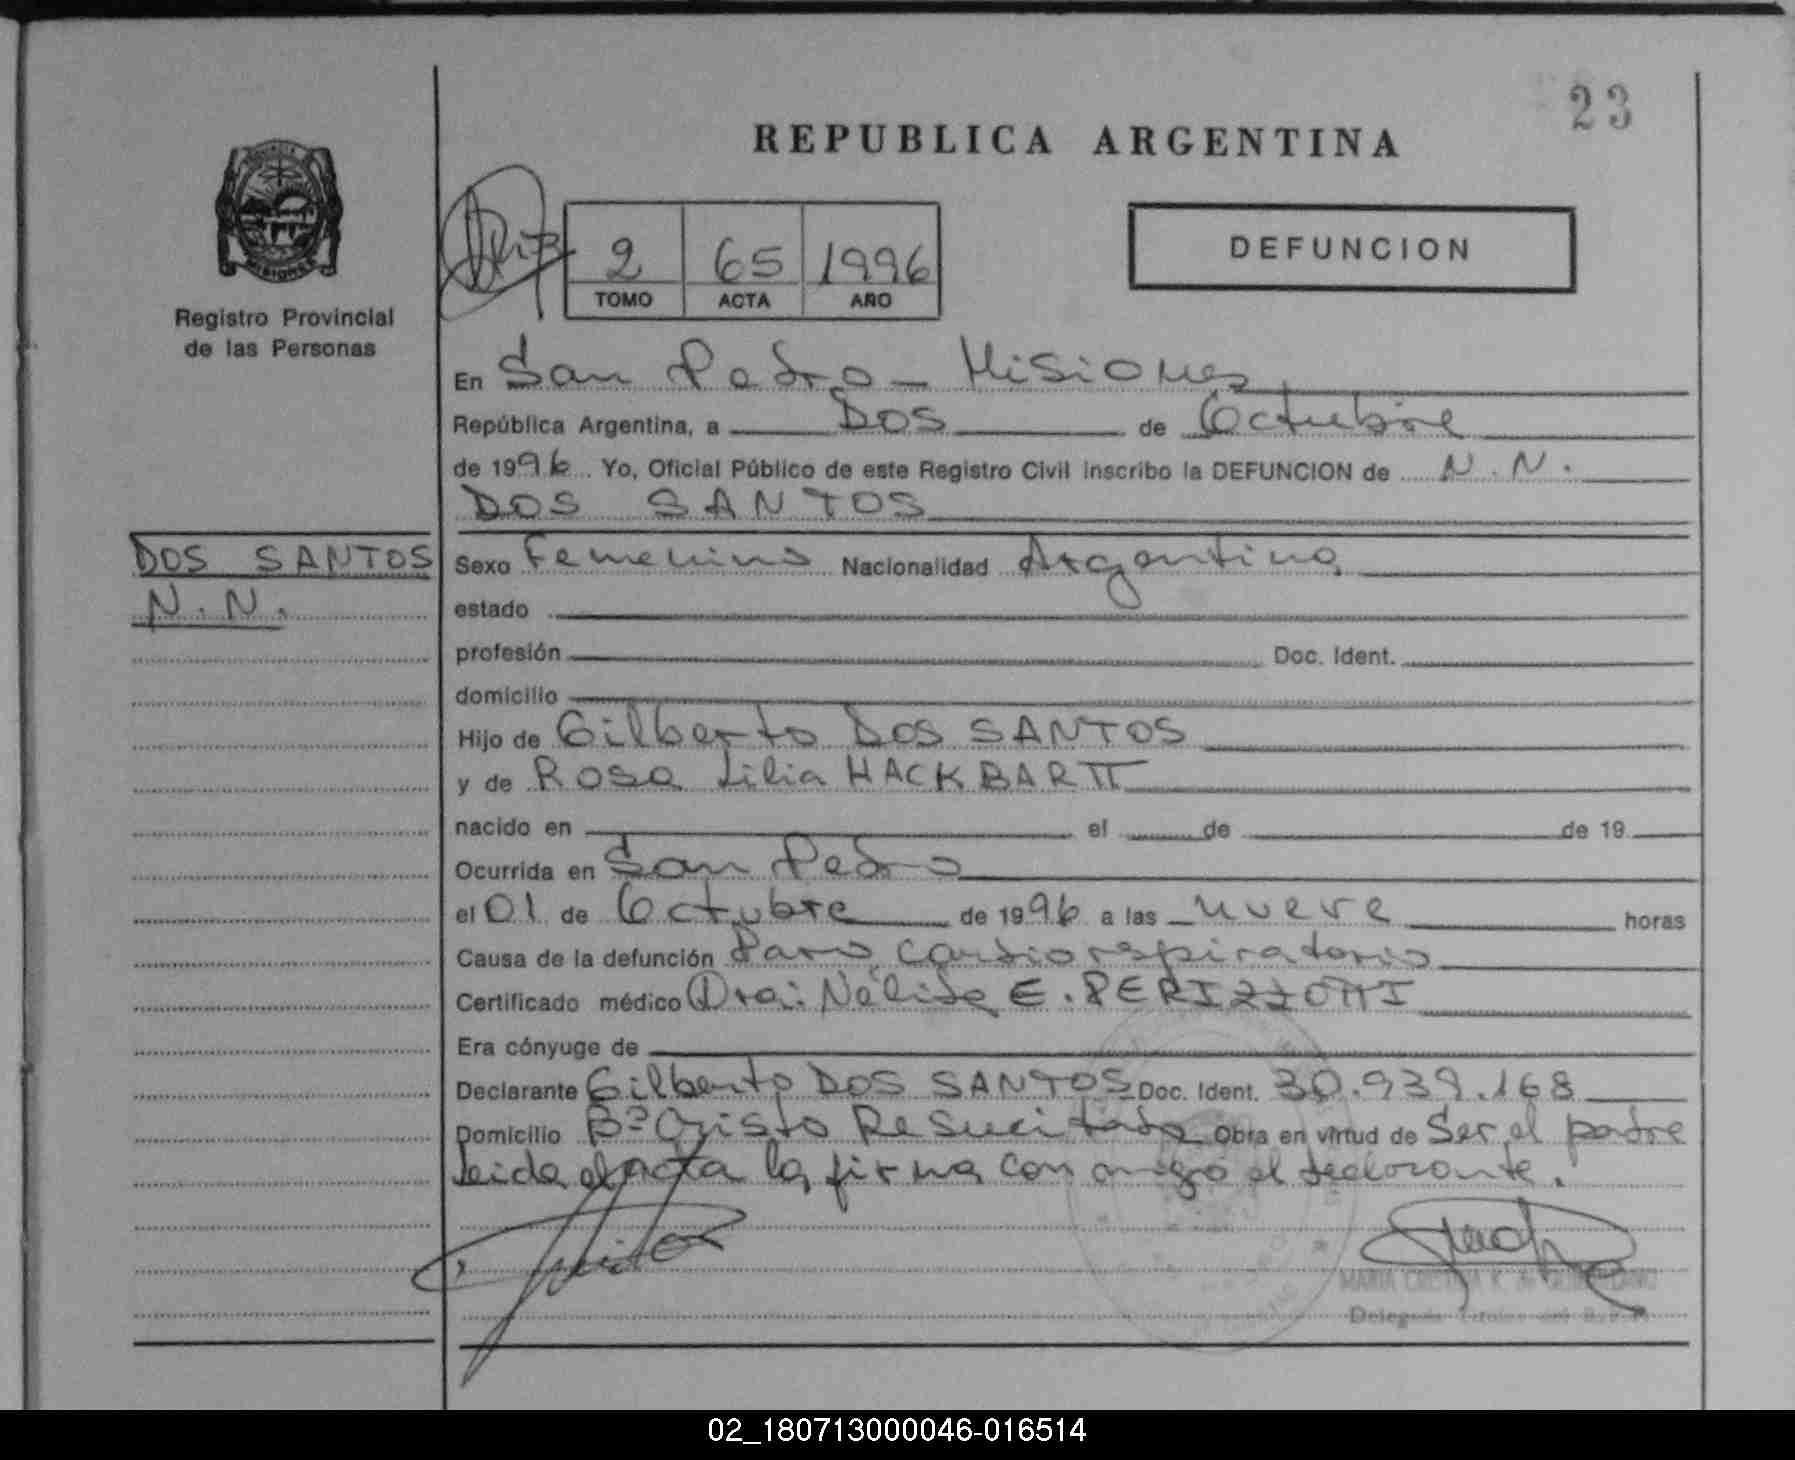 23
REPUBLICA ARGENTINA
2 65 1996
TOMO ACTA AÑO
DEFUNCION
Registro Provincial
de las Personas
En San Pedro - Misiones
República Argentina, a Dos de Octubre
de 1996 Yo, Oficial Público de este Registro Civil inscribo la DEFUNCION de N.N.
DOS SANTOS
DOS SANTOS
N.N.
Sexo Femenino Nacionalidad Argentina
estado
profesión Doc. Ident.
domicilio
Hijo de Gilberto DOS SANTOS
y de Rosa Lilia HACKBARTT
nacido en el de de 19
Ocurrida en San Pedro
el 01 de Octubre de 1996 a las nueve horas
Causa de la defunción Paro cardiorespiratorio
Certificado médico Dra: Nélida E. PERIZZOTTI
Era cónyuge de
Declarante Gilberto DOS SANTOS Doc. Ident. 30.939.168
Domicilio Bº Cristo Resucitado Obra en virtud de Ser el padre
Leida el acta la firma con migo el declarante.
MARIA CRISTINA K. de
Delegada Titular del R.P.P.
02_180713000046-016514